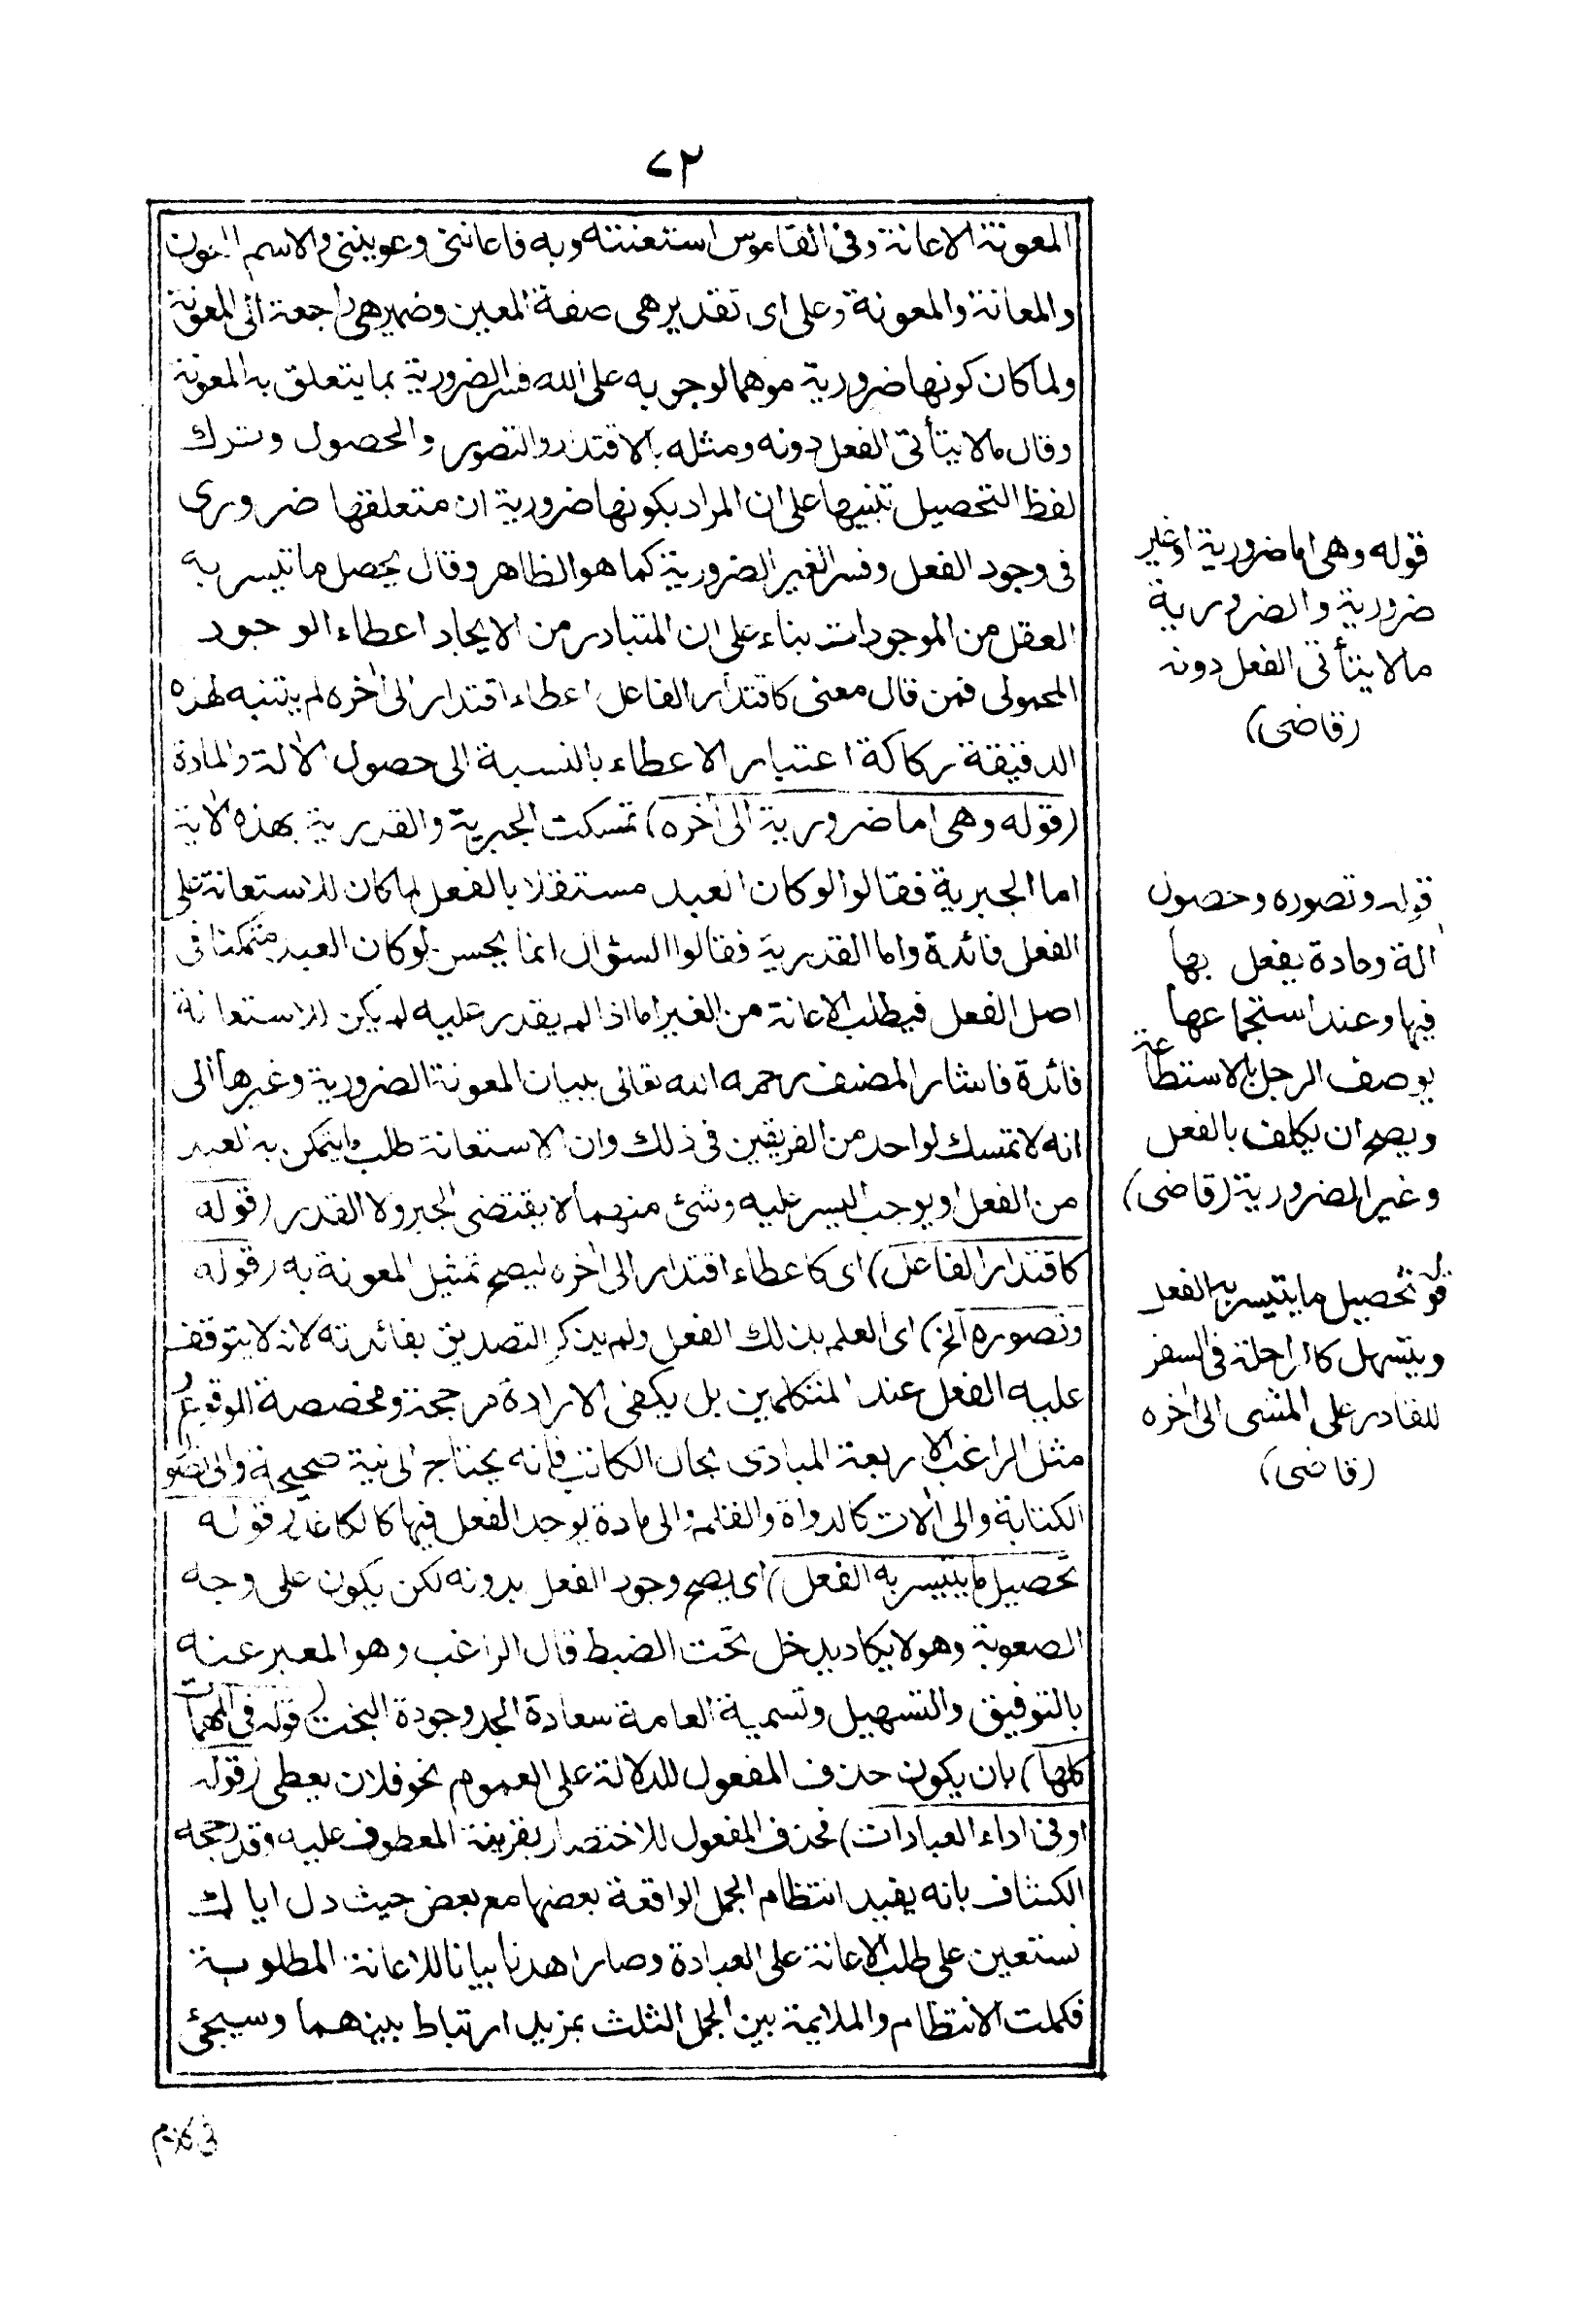 ٧٢
المعونة الاعانة وفى القاموس استعنته وبه فاعاننى وعوننى والاسم العون
والمعانة والمعونة وعلى اى تقدير هى صفة المعين وضمير هى راجعة الى المعونة
ولما كان كونها ضرورية موهما لوجوبه على الله فسر الضرورية بما يتعلق به المعونة
وقال مالا يتأتى الفعل دونه ومثله بالاقتدار والتصور والحصول وترك
لفظ التحصيل تنبيها على ان المراد بكونها ضرورية ان متعلقها ضرورى
فى وجود الفعل وفسر الغير الضرورية كما هو الظاهر وقال يحصل ما تيسر به
العقل من الموجودات بناء على ان المتبادر من الايجاد اعطاء الوجود
المحمولى فمن قال معنى كاقتدار الفاعل اعطاء اقتدار الى اخره لم يتنبه لهذه
الدقيقة ركاكة اعتبار الاعطاء بالنسبة الى حصول الالة والمادة
(قوله وهى اما ضرورية الى اخره) تمسكت الجبرية والقدرية بهذه الاية
اما الجبرية فقالوا لو كان العبد مستقلا بالفعل لما كان للاستعانة على
الفعل فائدة واما القدرية فقالوا السؤال انما يحسن لو كان العبد متمكنا فى
اصل الفعل فيطلب الاعانة من الغير اما اذا لم يقدر عليه لم يكن للاستعانة
فائدة فاشار المصنف رحمه الله تعالى ببيان المعونة الضرورية وغيرها الى
انه لا تمسك لواحد من الفريقين فى ذلك وان الاستعانة طلب ما يتمكن به العبد
من الفعل او يوجب اليسر عليه وشئ منهما لا يقتضى الجبر ولا القدر (قوله
كاقتدار الفاعل) اى كاعطاء اقتدار الى اخره ليصح تمثيل المعونة به (قوله
وتصوره الخ) اى العلم بذلك الفعل ولم يذكر التصديق بفائدته لانه لا يتوقف
عليه الفعل عند المتكلمين بل يكفى الارادة مرجحة ومخصصة الوقوع
مثل الراغب الاربعة المبادى بحال الكاتب فانه يحتاج الى نية صحيحة والى تصو
الكتابة والى الات كالدواة والقلم والى مادة يوجد الفعل فيها كالكاغد (قوله
تحصيل ما يتيسر به الفعل) اى يصح وجود الفعل بدونه لكن يكون على وجه
الصعوبة وهو لا يكاد يدخل تحت الضبط قال الراغب وهو المعبر عنه
بالتوفيق والتسهيل وتسمية العامة سعادة الجد وجودة البخت (قوله فى المهمات
كلها) بان يكون حذف المفعول للدلالة على العموم نحو فلان يعطى (قوله
او فى اداء العبادات) فحذف المفعول للاختصار بقرينة المعطوف عليه وقد رجحه
الكشاف بانه يفيد انتظام الجمل الواقعة بعضها مع بعض حيث دل اياك
نستعين على طلب الاعانة على العبادة وصار اهدنا بيانا للاعانة المطلوبة
فكملت الانتظام والملايمة بين الجمل الثلث بمزيد ارتباط بينهما وسيجئ
فى كلام
قوله وهى اما ضرورية او غير
ضرورية والضرورية
مالا يتأتى الفعل دونه
(قاضى)
قوله وتصوره وحصول
الة ومادة يفعل بها
فيها وعند استجماعها
يوصف الرجل بالاستطاعة
ويصح ان يكلف بالفعل
وغير الضرورية (قاضى)
قوله تحصيل ما يتيسر به الفعل
ويتسهل كالراحلة فى السفر
للقادر على المشى الى اخره
(قاضى)